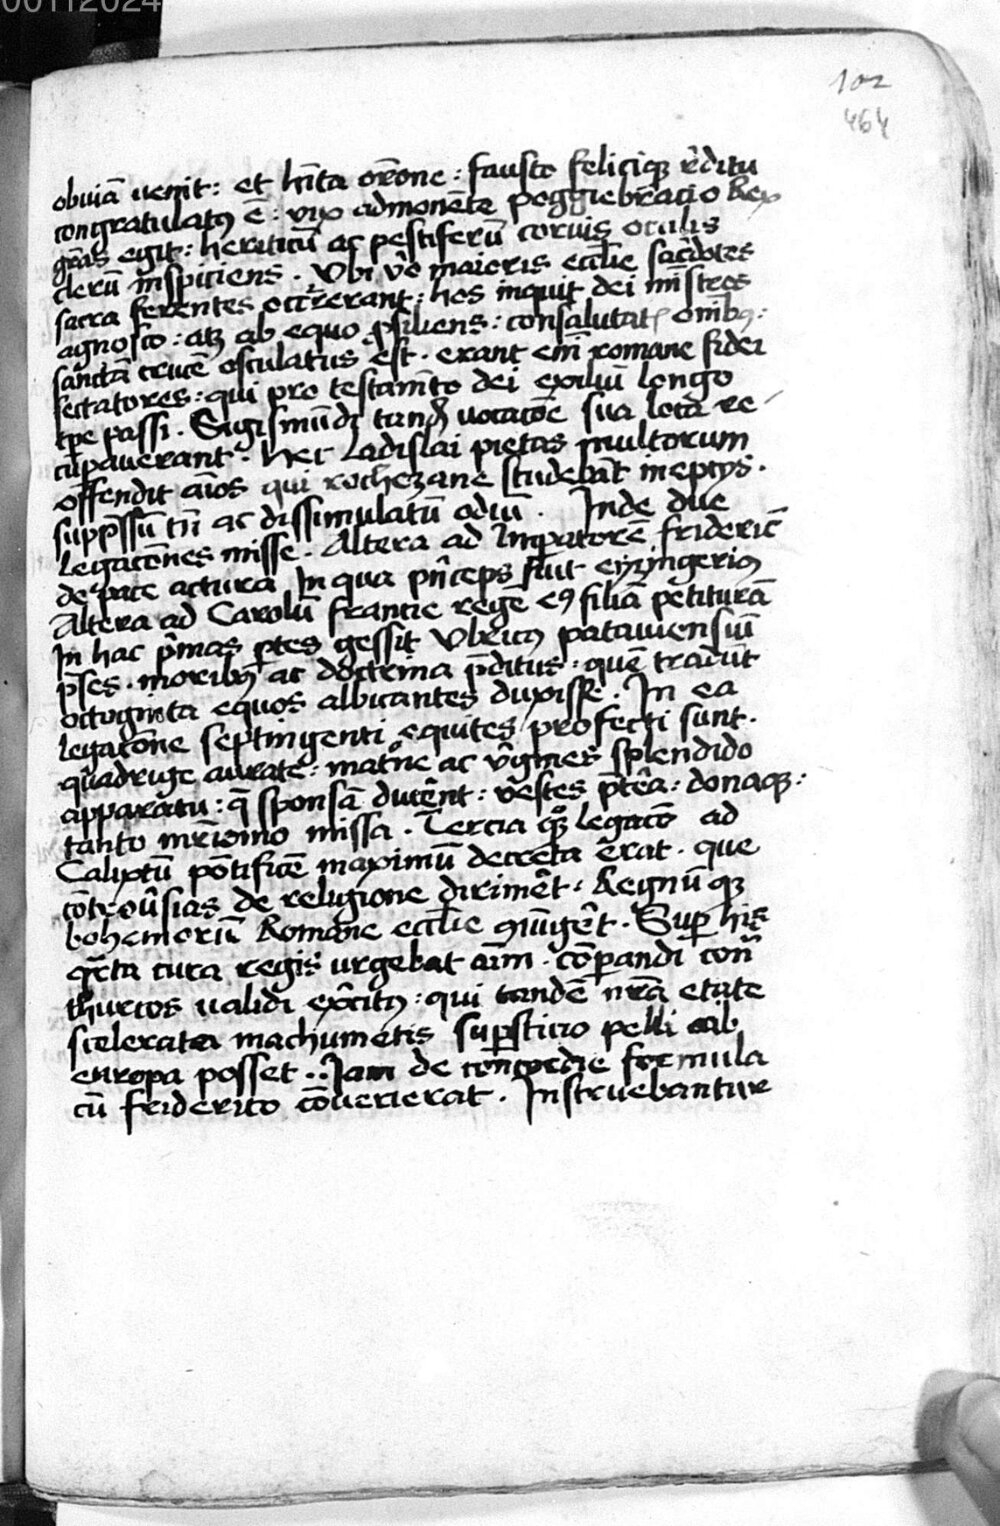 00112024
102
464
obuiā uenit: et hīta orōne: fausto feliciqꝫ r̄ditu
congratulatꝰ ē: vix admonēte poggiebracio Rex
grās egit: hereticū ac pestiferū toruis oculis
clerū inspiciens. Vbi v̂o maioris eccl̄ie sac̄dotes
sacra ferentes occr̄rerant: hos inquit dei mīstros
agnosco: atqꝫ ab equo ꝓsiliens: consalutatꝭ om̄ibꝰ:
sanctā crucē osculatus est. erant em̄ romane fidei
sectatores: qui pro testam̄to dei exiliū longo
tꝑe passi. Sigismūdi tandē uocatōe sua loca re
cuꝑauerant. hec Ladislai pietas multorum
offendit aīos qui rochezane studebāt ineptijs.
supp̄ssū tn̄ ac dissimulatū odiū. Inde due
legacōnes misse. Altera ad Inꝑatorē frideric̄
de pace actura In qua prīceps fuit eyzingeriꝰ
Altera ad Carolū francie regē eꝰ filiā petiturā
In hac pīmas ꝑtes gessit Vdricꝰ patauiensiū
p̄ses. moribꝰ ac doctrina p̄ditus: quē tradūt
octoginta equos albicantes duxisse. In ea
legacōne septingenti equites profecti sunt.
quadruge aurate: matrōe ac v̂gines splendido
apparatu: q̄ sponsā ducêrent: vestes p̄têa: donaqꝫ:
tanto mr̄iomo missa. Tercia qꝫ legacō ad
Calixtū pōtificē maximū decreta erat. que
cōtrov̂sias de religione dirimêt: Regnū qꝫ
bohemoriū Romane eccl̄ie ꝯiūgêt. Suꝑ his
q̄rta cura regis urgebat aīm. cōꝑandi con̄
thurcos validi ex̄citꝰ: qui tandē nr̄a etate
scelerata machumetis suꝑsticio pelli ab
europa posset.. Iam de concordie formula
cū friderico cōuenerat. Instruebantur